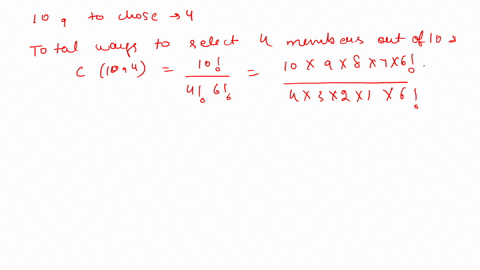 10, to chose → 4
Total ways to select 4 members out of 10 s
C (10,4) = 10! / 4! 6! = 10 × 9 × 8 × 7 × 6! / 4 × 3 × 2 × 1 × 6!